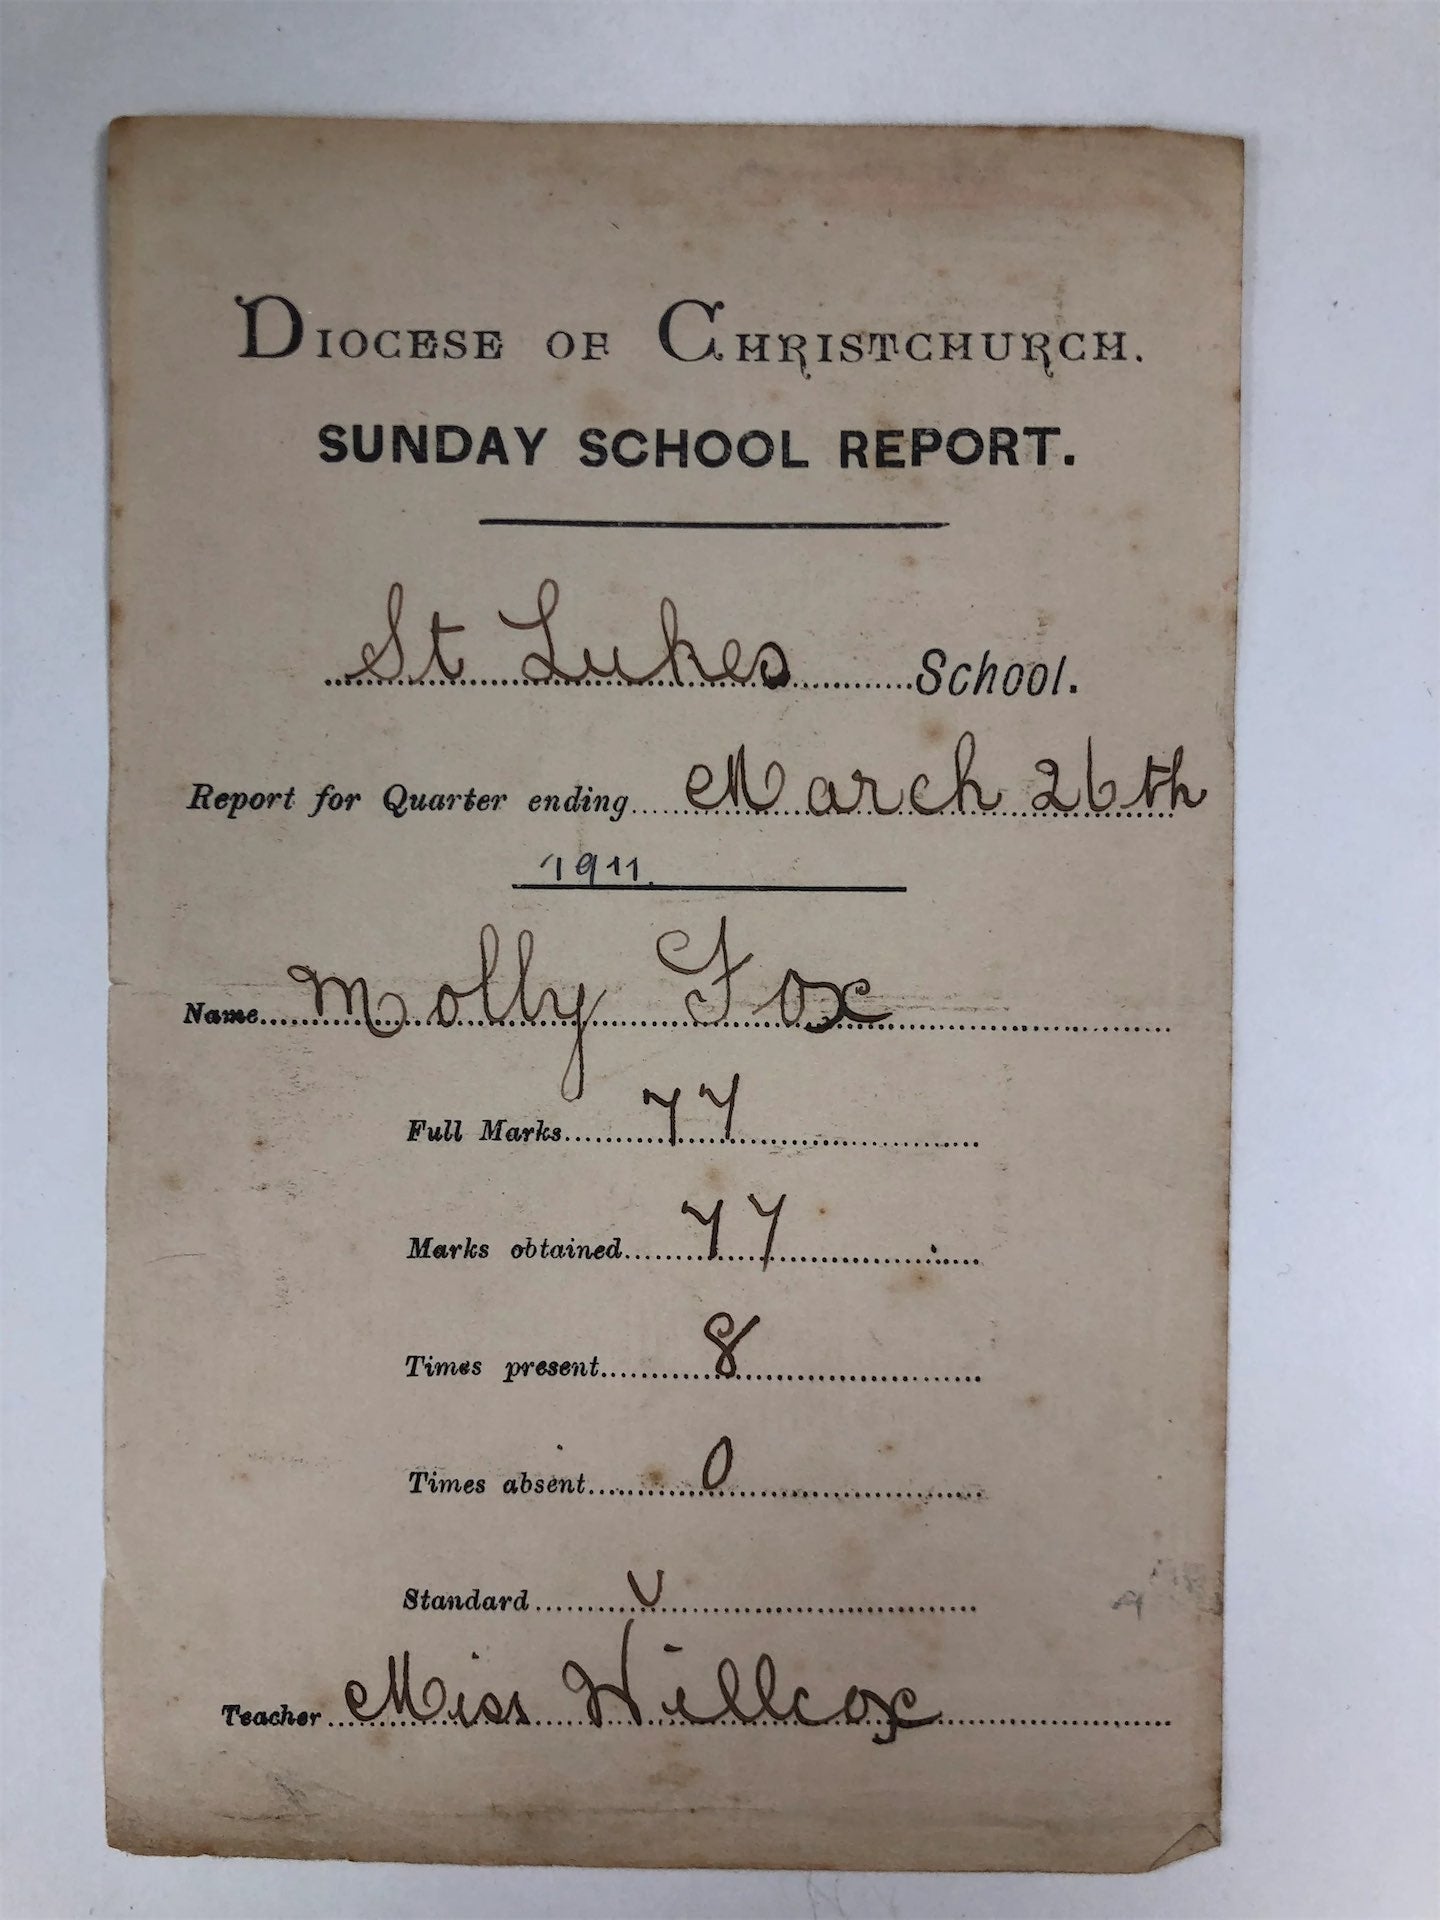 DIOCESE OF CHRISTCHURCH.
SUNDAY SCHOOL REPORT.
St Lukes School.
Report for Quarter ending March 26th
1911.
Name Molly Fox
Full Marks 77
Marks obtained 77
Times present 8
Times absent 0
Standard V
Teacher Miss Willcox